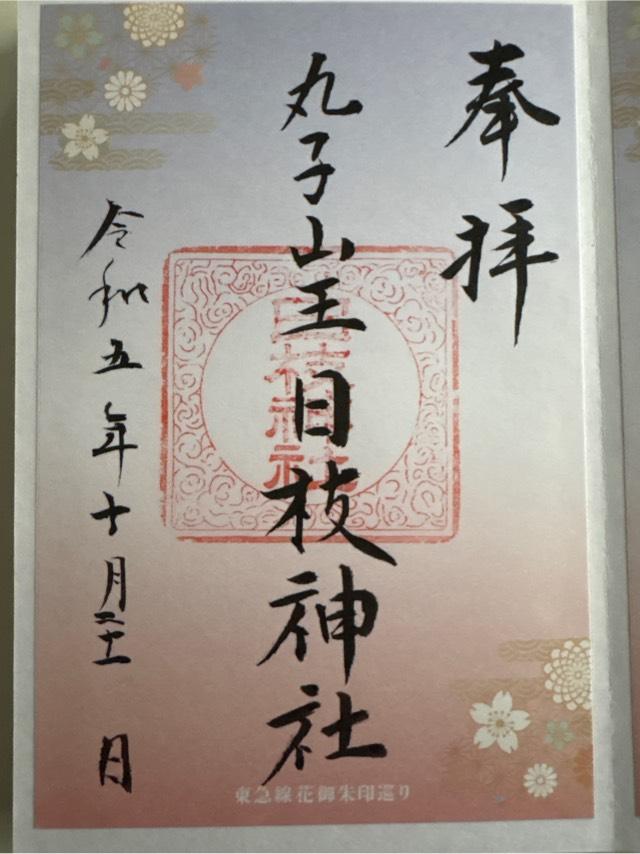 奉拝
丸子山王日枝神社
日枝神社
令和五年十月二十一日
東急線花御朱印巡り